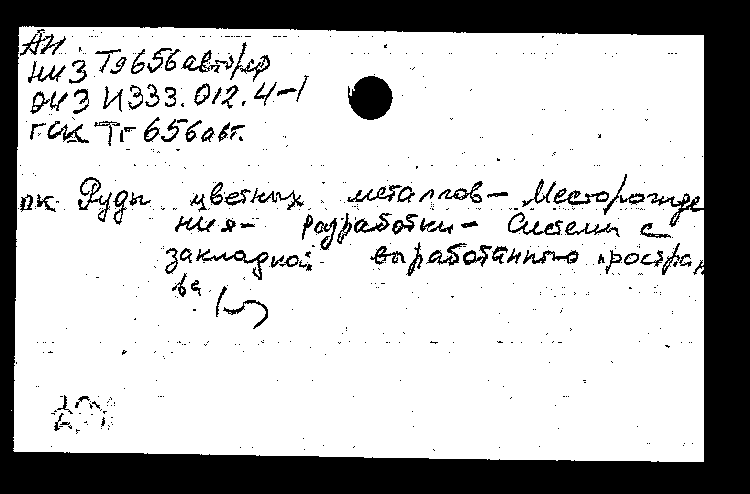 АИ
НИЗ Тд656автореф
ОИЗ И333.012.4-1
ГСК Тг656авт.
ПК Руды цветных металлов- Месторожде
ния- разработки- Системы с
закладкой выработанного простран
ва